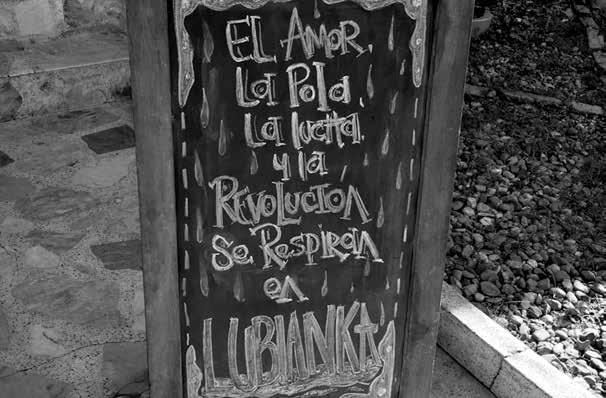 EL AMOR,
La Pola,
La lucha,
y la
REVOLUCIÓN
Se RESPIRAN
en
LUBIANKA